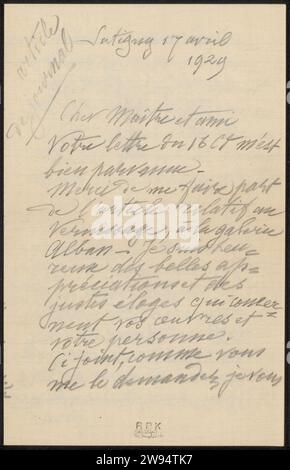 article
de journal
Satigny 17 avril
1929
Cher Maître et ami
Votre lettre du 16 Ct m'est
bien parvenue -
Merci de me faire part
de l'article relatif au
Vernissage, à la galerie
Alban - Je suis heu=
reux des belles ap=
préciations et des
justes éloges qui concer=
nent vos œuvres et
votre personne.
Ci joint, comme vous
me le demandez, je vous
R.P.K
alamy
www.alamy.com
Image ID: 2W94TK7